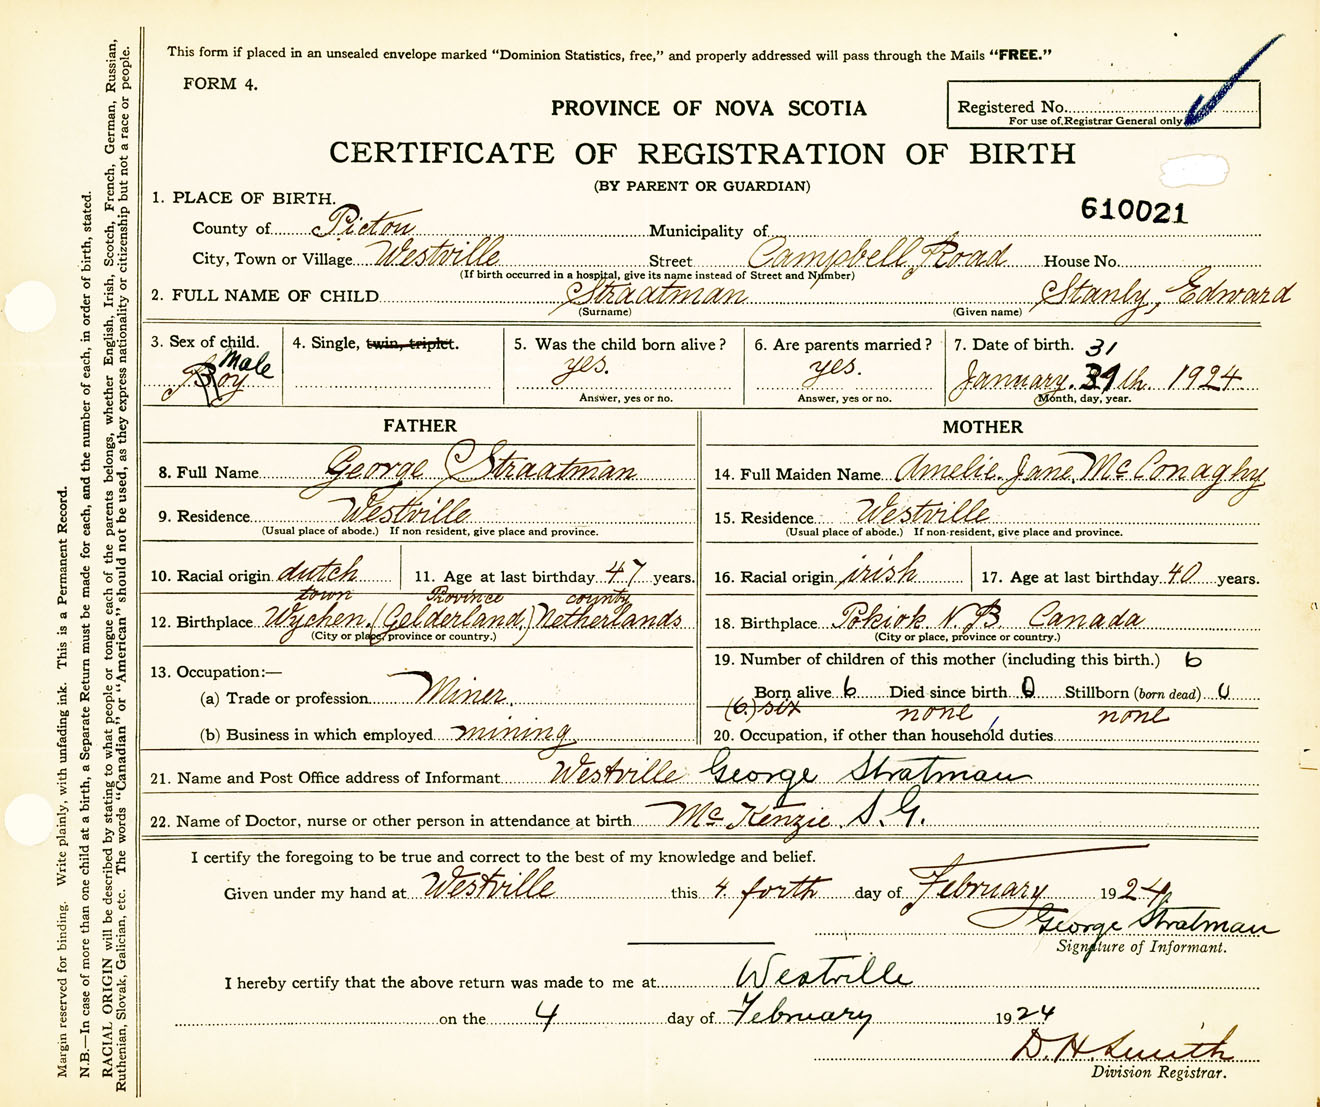 This form if placed in an unsealed envelope marked "Dominion Statistics, free," and properly addressed will pass through the Mails "FREE."
FORM 4.
Registered No.
For use of Registrar General only
PROVINCE OF NOVA SCOTIA
CERTIFICATE OF REGISTRATION OF BIRTH
(BY PARENT OR GUARDIAN)
610021
1. PLACE OF BIRTH.
County of Pictou Municipality of
City, Town or Village Westville Street Campbell Road House No.
(If birth occurred in a hospital, give its name instead of Street and Number)
2. FULL NAME OF CHILD Straatman Stanly, Edward
(Surname) (Given name)
3. Sex of child. Male Boy
4. Single, twin, triplet.
5. Was the child born alive? yes.
Answer, yes or no.
6. Are parents married? yes.
Answer, yes or no.
7. Date of birth. 31
January. 31th. 1924
Month, day, year.
FATHER
8. Full Name George Straatman
9. Residence Westville
(Usual place of abode.) If non resident, give place and province.
10. Racial origin dutch 11. Age at last birthday 47 years.
town Province county
12. Birthplace Wychen. (Gelderland,) Netherlands
(City or place, province or country.)
13. Occupation:—
(a) Trade or profession Miner.
(b) Business in which employed mining
MOTHER
14. Full Maiden Name Amelie. Jane. McConaghy
15. Residence Westville
(Usual place of abode.) If non-resident, give place and province.
16. Racial origin irish 17. Age at last birthday 40 years.
18. Birthplace Pokiok N.B. Canada
(City or place, province or country.)
19. Number of children of this mother (including this birth.) 6
Born alive 6 Died since birth 0 Stillborn (born dead) 0
(6.) six none none
20. Occupation, if other than household duties
21. Name and Post Office address of Informant Westville George Stratman
22. Name of Doctor, nurse or other person in attendance at birth McKenzie S. G.
I certify the foregoing to be true and correct to the best of my knowledge and belief.
Given under my hand at Westville this 4. forth day of February 1924
George Stratman
Signature of Informant.
I hereby certify that the above return was made to me at Westville
on the 4 day of February 1924
D. H. Smith
Division Registrar.
Margin reserved for binding. Write plainly, with unfading ink. This is a Permanent Record.
N.B.—In case of more than one child at a birth, a Separate Return must be made for each, and the number of each, in order of birth, stated.
RACIAL ORIGIN will be described by stating to what people or tongue each of the parents belongs, whether English, Irish, Scotch, French, German, Russian,
Ruthenian, Slovak, Galician, etc. The words "Canadian" or "American" should not be used, as they express nationality or citizenship but not a race or people.